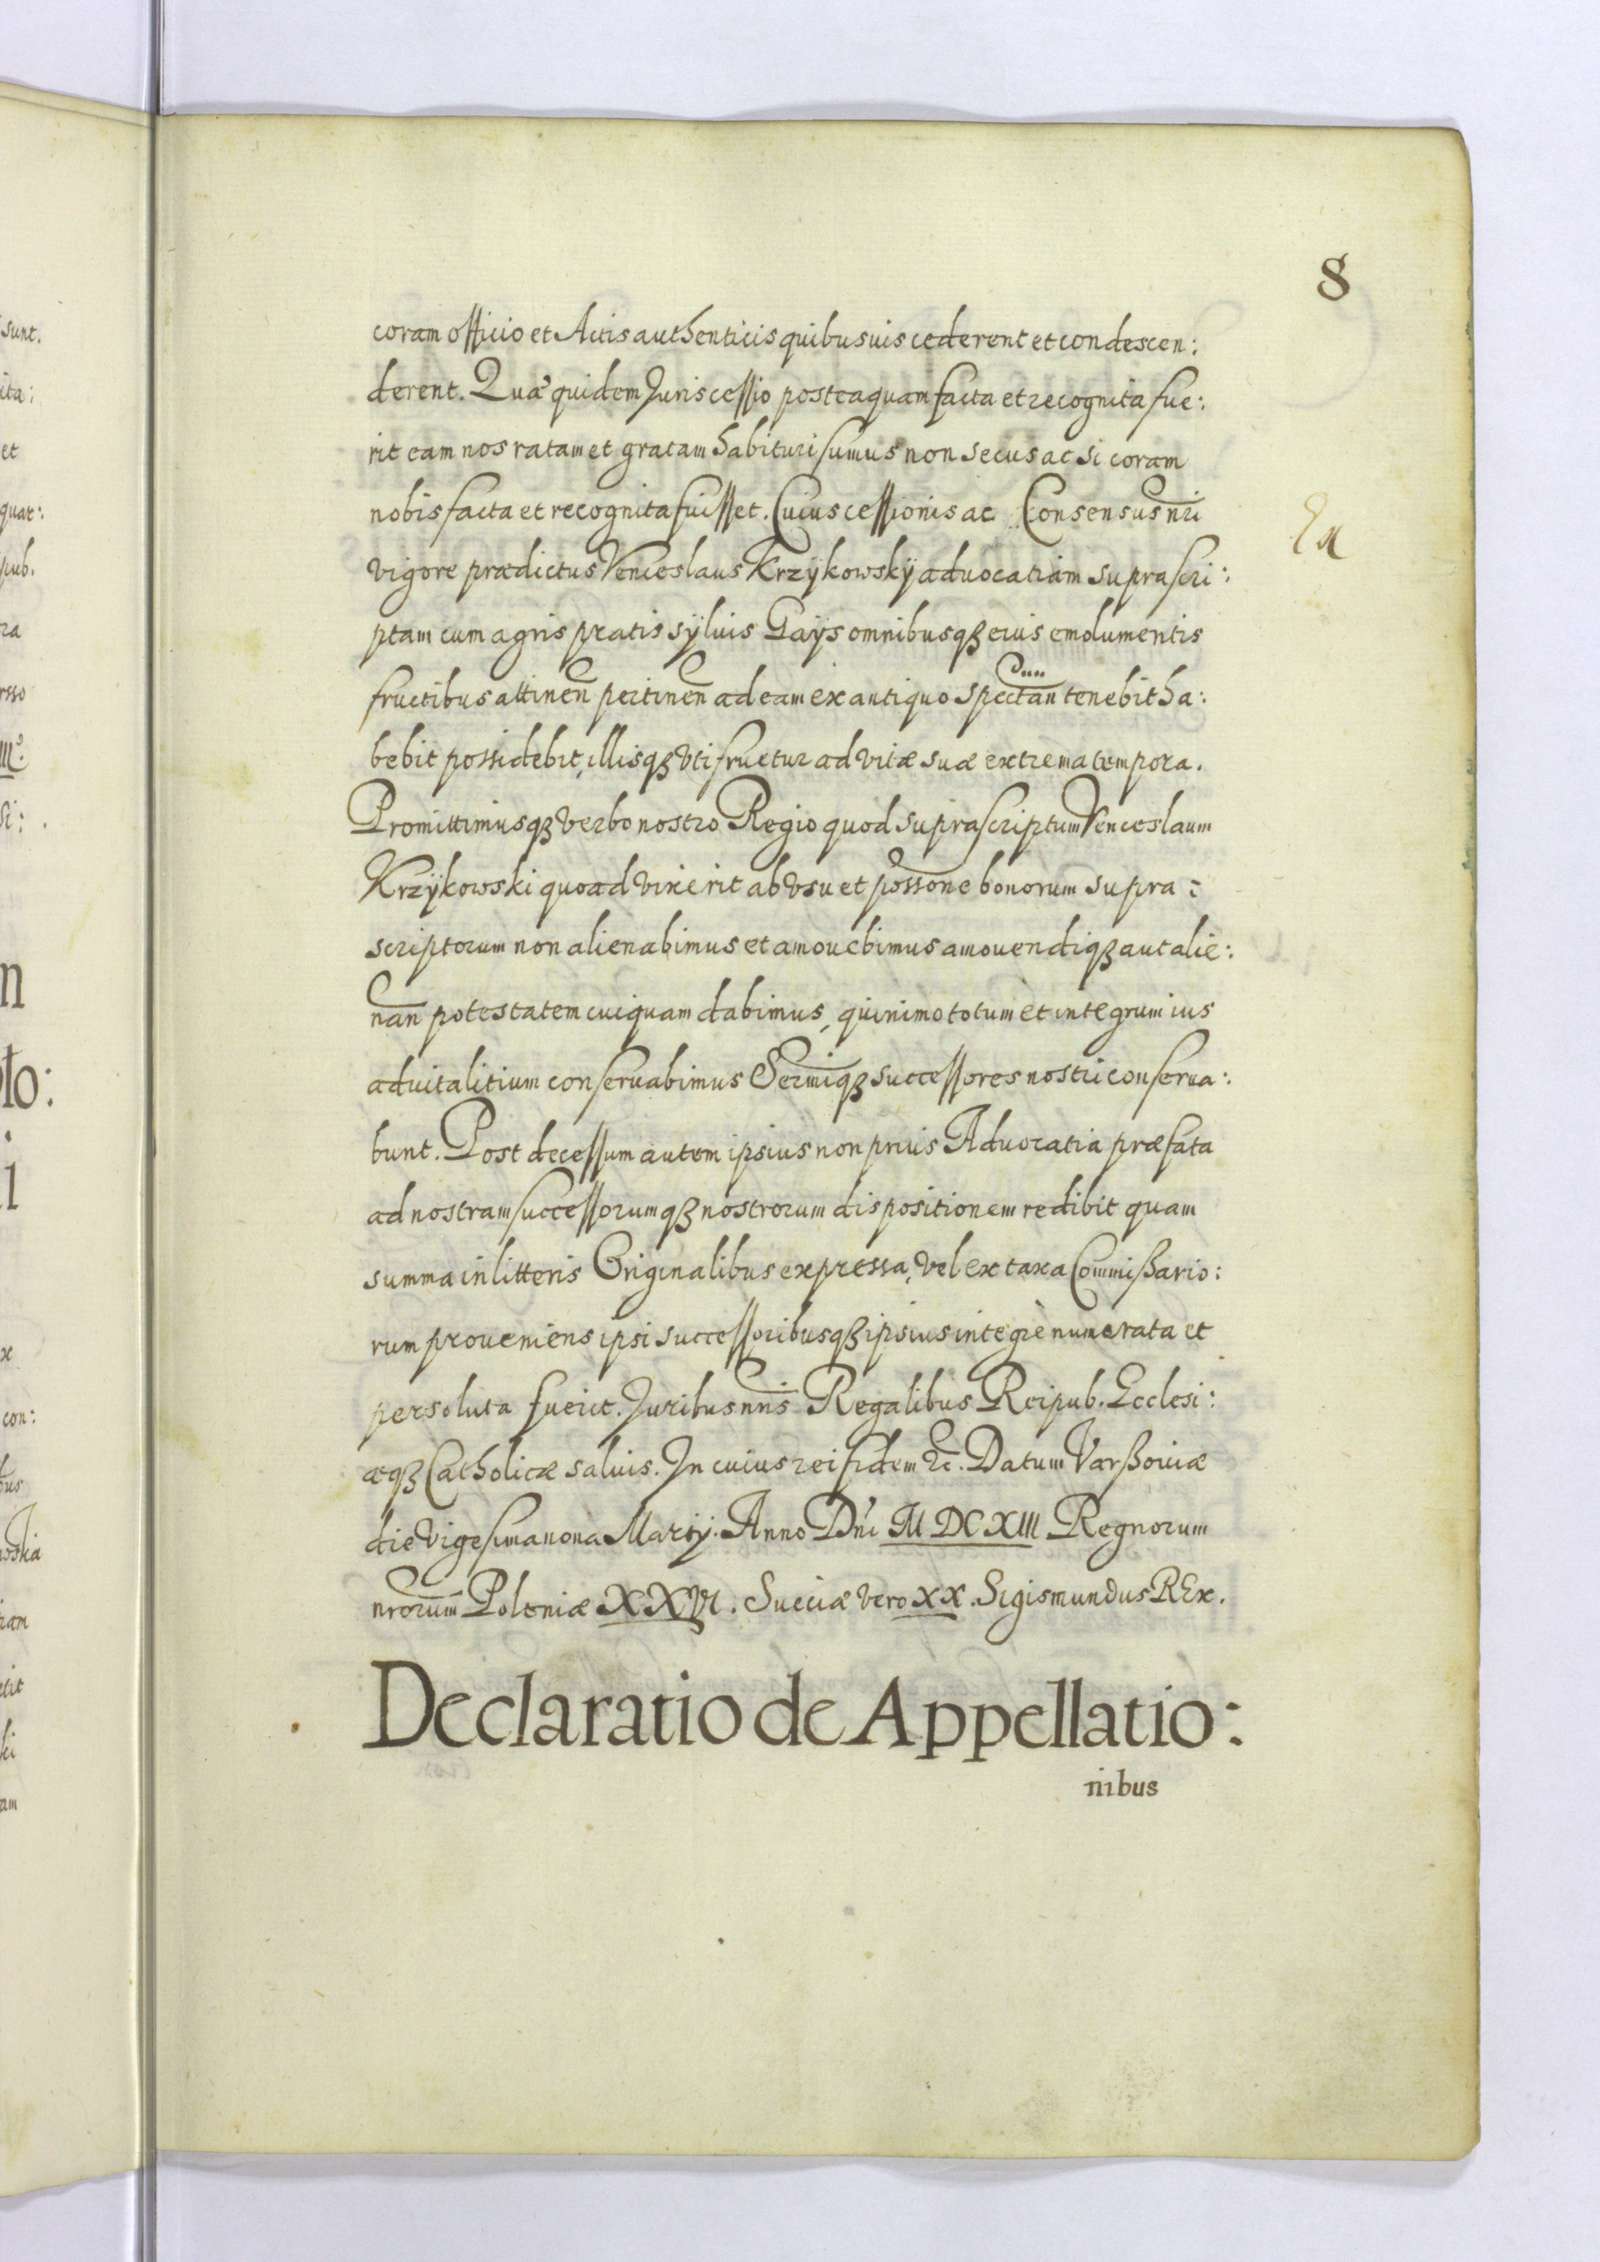 8
coram officio et Actis authenticis quibusuis cederent et condescen:
derent. Quæ quidem Juris cessio posteaquam facta et recognita fue:
rit eam nos ratam et gratam habituri sumus non secus ac si coram
nobis facta et recognita fuisset. Cuius cessionis ac Consensus nri
vigore prædictus Venceslaus Krzÿkowskÿ aduocatiam suprascri:
ptam cum agris pratis sÿluis Gaÿs omnibusqꝫ eius emolumentis
fructibus attinen pertinen ad eam ex antiquo spectan tenebit ha:
bebit possidebit, illisqꝫ vti fruetur ad vitæ suæ extrema tempora.
Promittimusqꝫ verbo nostro Regio quod suprascriptum Venceslaum
Krzÿkowski quoad vixerit ab vsu et possone bonorum supra:
scriptorum non alienabimus et amouebimus amouendiqꝫ aut alie:
nan potestatem cuiquam dabimus, quinimo totum et integrum ius
aduitalitium conseruabimus Sermiqꝫ successores nostri conserua:
bunt. Post decessum autem ipsius non prius Aduocatia præfata
ad nostram successorumqꝫ nostrorum dispositionem redibit quam
summa in litteris Originalibus expressa, vel ex taxa Commißario:
rum proueniens ipsi successoribusqꝫ ipsius integrè numerata et
persoluta fuerit. Juribus nris Regalibus Reipub. Ecclesi:
æqꝫ Catholicæ saluis. In cuius rei fidem &c. Datum Varßouiæ
die vigesima nona Martÿ. Anno Dni M DC XIII Regnorum
nrorum Poloniæ XXVI. Sueciæ vero XX. Sigismundus REx.
Declaratio de Appellatio:
nibus